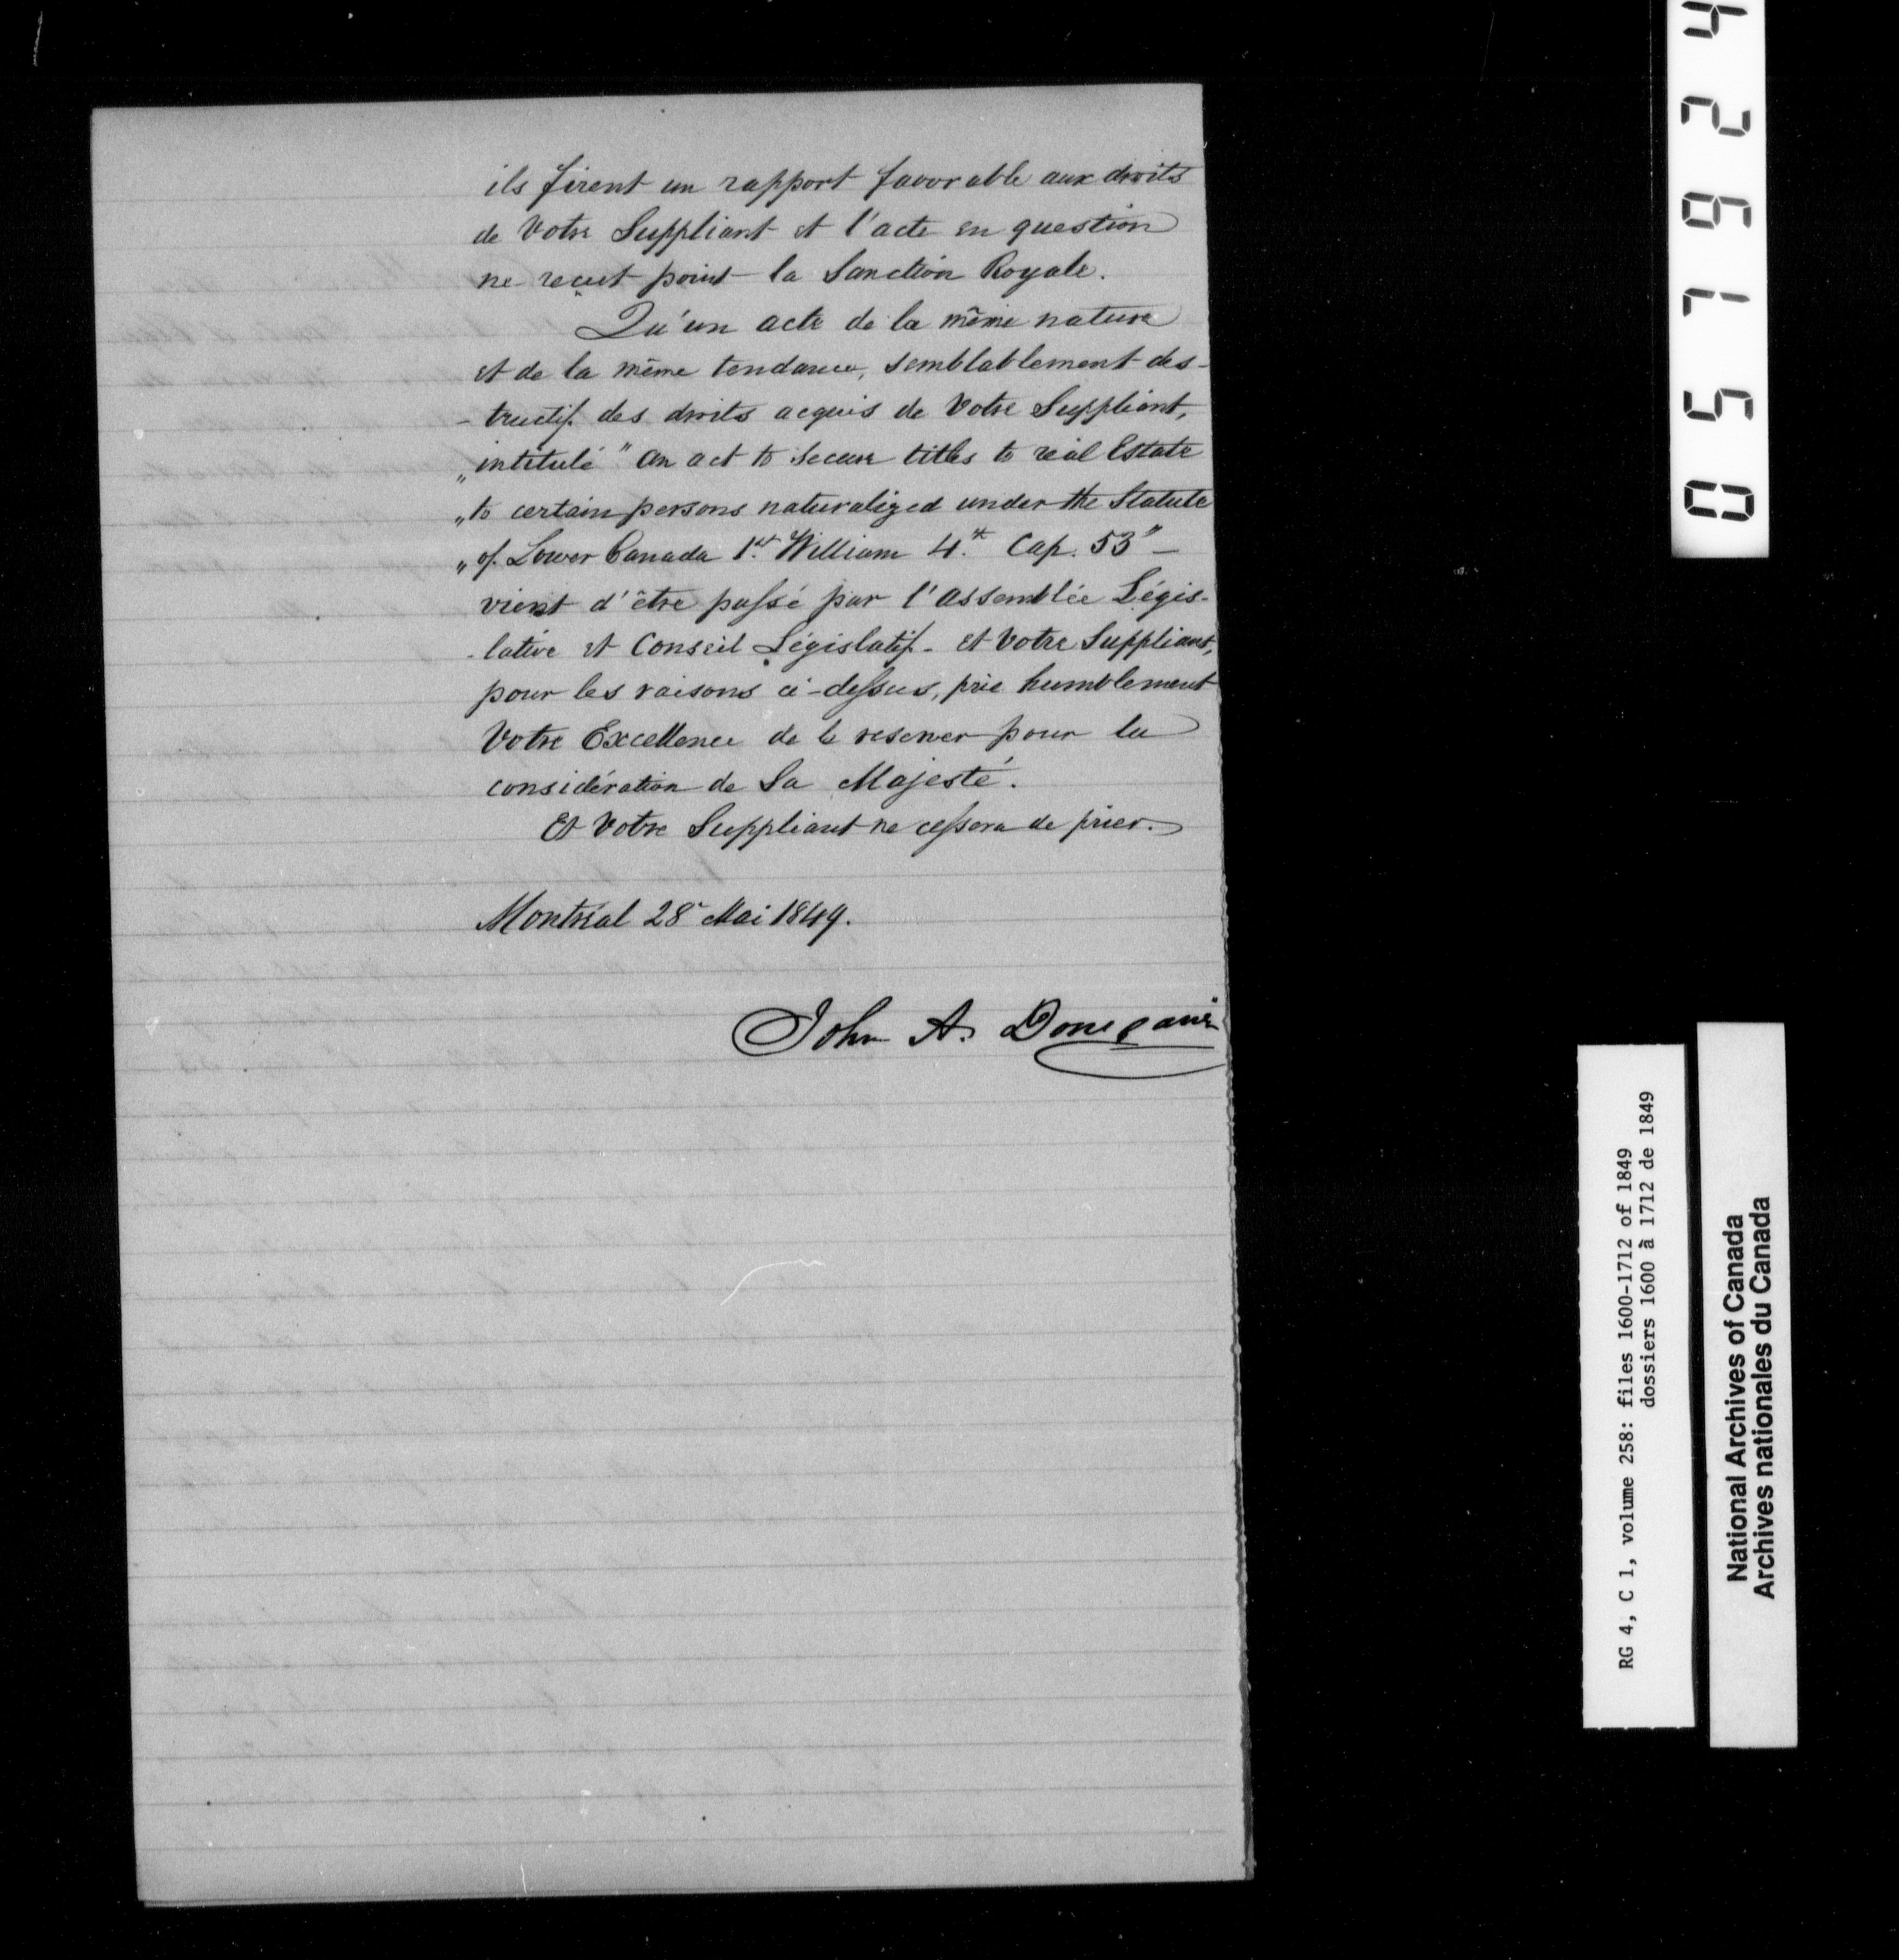 ils firent un rapport favorable aux droits
de Votre Suppliant et l'acte en question
ne reçut point la Sanction Royale.
Qu'un acte de la même nature
et de la même tendance, semblablement des-
- tructif des droits acquis de Votre Suppliant,
„ intitulé " An act to secure titles to real Estate
„ to certain persons naturalized under the Statute
„ of Lower Canada 1st William 4th Cap. 53" —
vient d'être passé par l'Assemblée Légis-
- lative et Conseil Législatif - et Votre Suppliant,
pour les raisons ci-dessus, prie humblement
Votre Excellence de le reserver pour la
considération de Sa Majesté.
Et Votre Suppliant ne cessera de prier.
Montréal 28 Mai 1849.
John A. Donegani
057924
RG 4, C 1, volume 258: files 1600-1712 of 1849
dossiers 1600 à 1712 de 1849
National Archives of Canada
Archives nationales du Canada